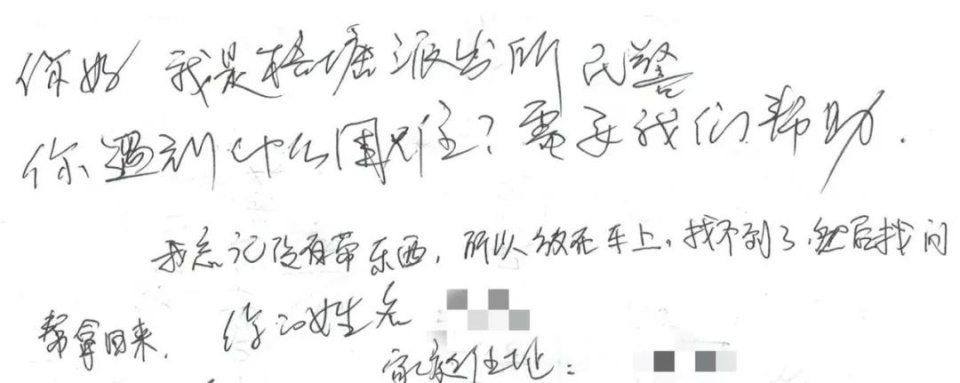 你好 我是格塘派出所 民警
你遇到什么困难？需要我们帮助.
我忘记没有带东西，所以放在车上，找不到了，然后找问
帮拿回来.
你的姓名
家庭住址：